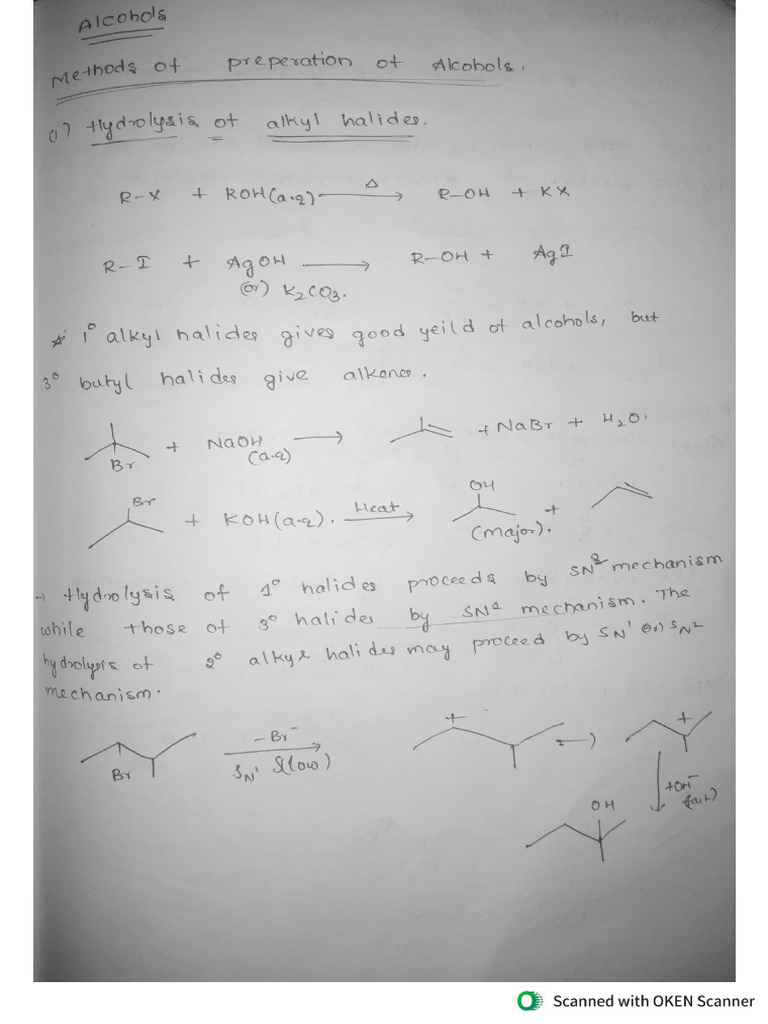 Alcohols
Methods of preperation of Alcohols.
(1) Hydrolysis of alkyl halides.
R-X + KOH(a.q) Δ→ R-OH + KX
R-I + AgOH → R-OH + AgI
(or) K₂CO₃.
* 1° alkyl halides gives good yeild of alcohols, but
3° butyl halides give alkenes.
Br + NaOH (a.q) → + NaBr + H₂O.
Br + KOH(a.q). Heat→ OH (major). +
→ Hydrolysis of 1° halides proceeds by SN² mechanism
while those of 3° halides by SN1 mechanism. The
hydrolysis of 2° alkyl halides may proceed by SN¹ (or) SN²
mechanism.
Br -Br⁻ SN¹ S(low) + → +
+OH⁻ (fast)
OH
Scanned with OKEN Scanner